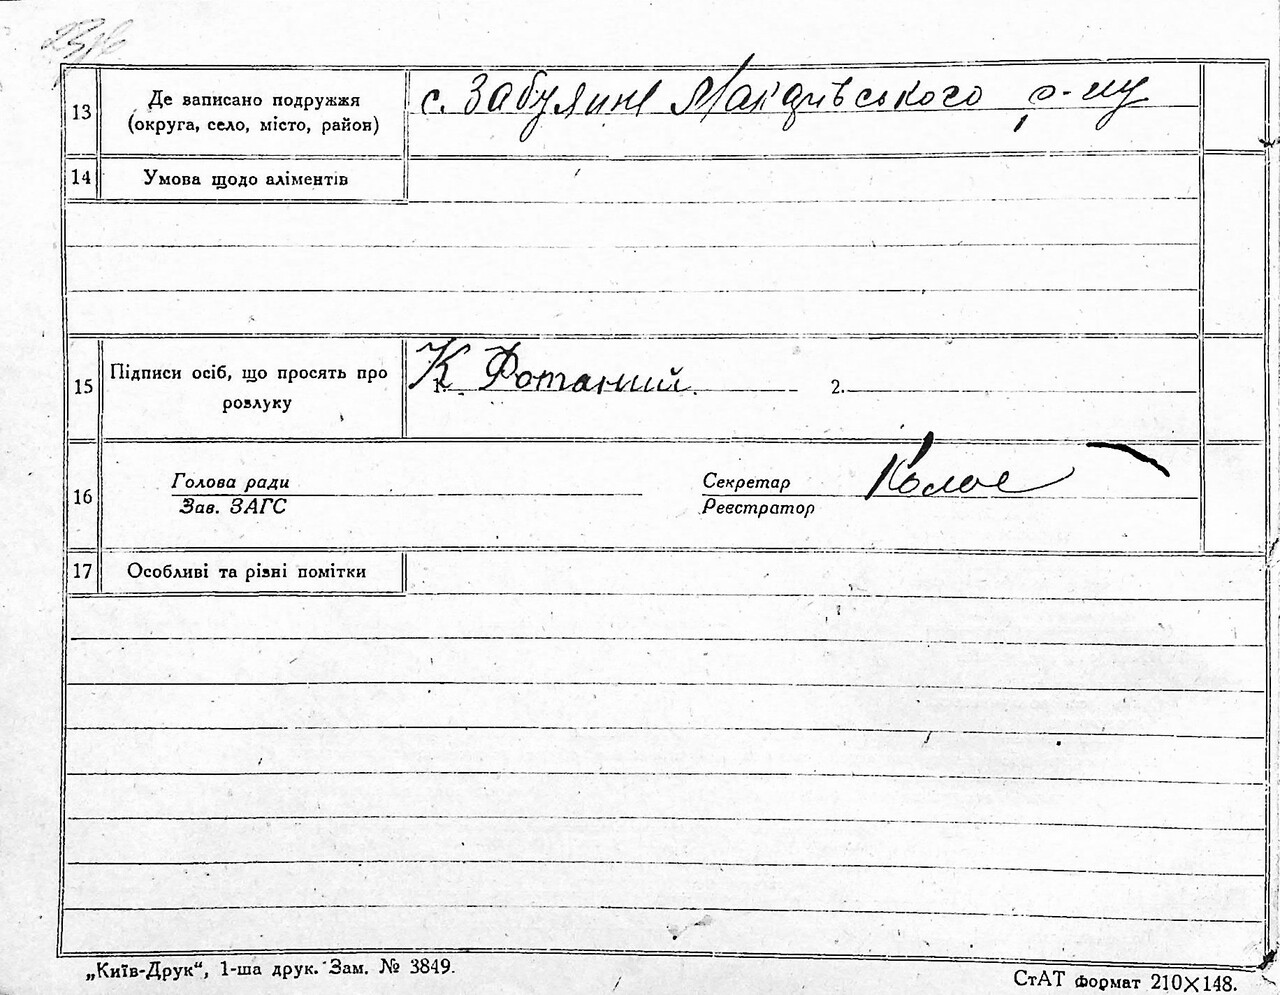 13 Де записано подружжя (округа, село, місто, район) с. Забуяння Макарівського р-ну
14 Умова щодо аліментів
15 Підписи осіб, що просять про розлуку 1. К 2.
16 Голова ради Секретар Колос
Зав. ЗАГС Реєстратор
17 Особливі та різні помітки
„Київ-Друк“, 1-ша друк. Зам. № 3849.
СтАТ формат 210×148.